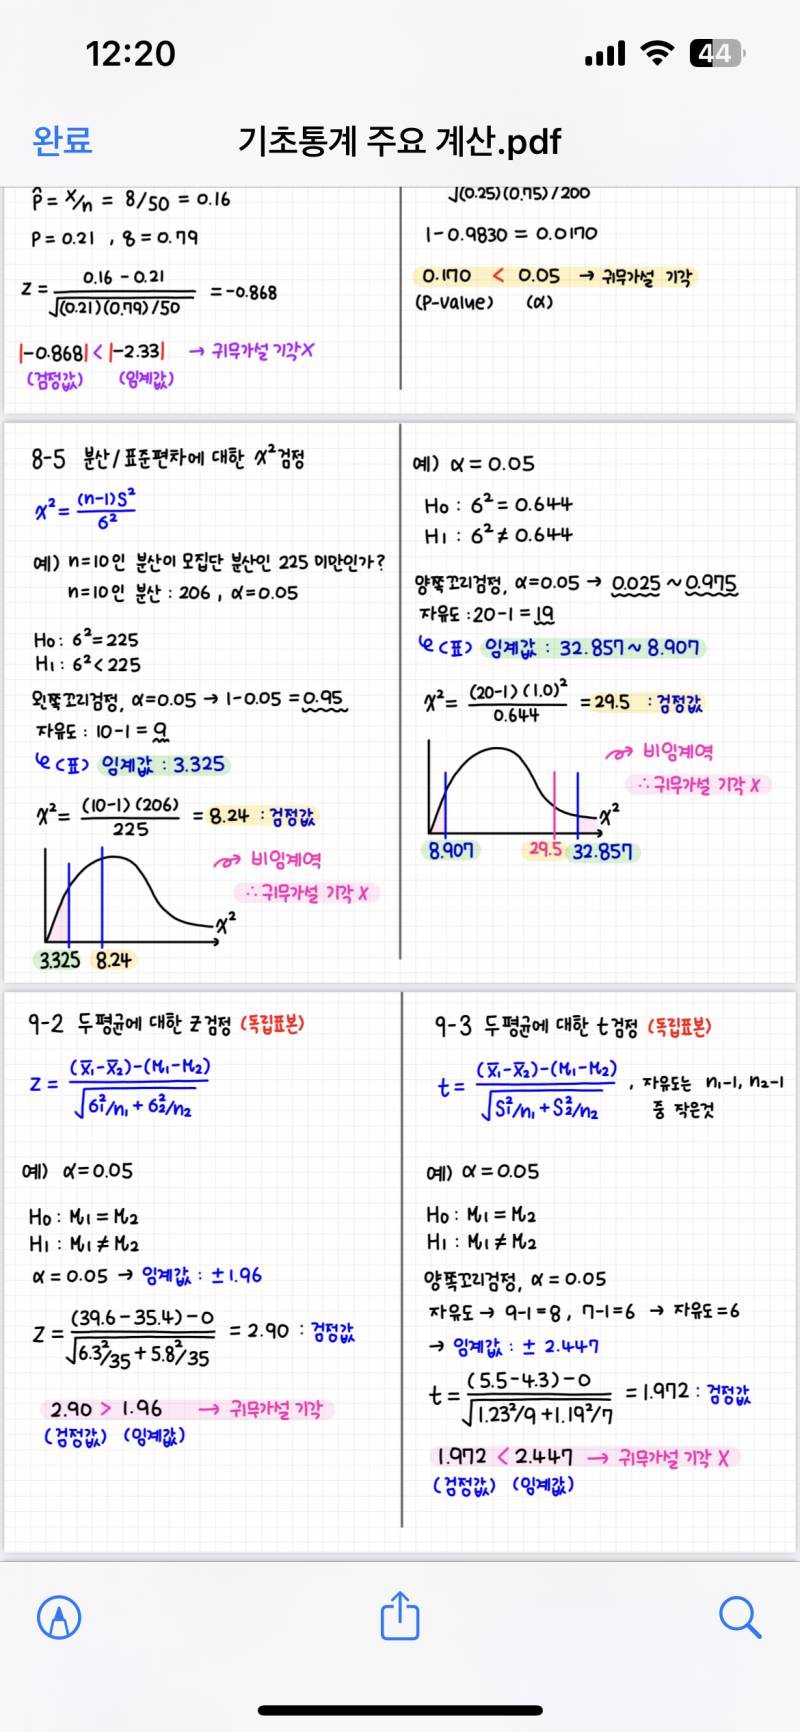 12:20
44
완료
기초통계 주요 계산.pdf
p̂ = x/n = 8/50 = 0.16
P = 0.21 , q = 0.79
z = (0.16 - 0.21) / √((0.21)(0.79)/50) = -0.868
|-0.868| < |-2.33| → 귀무가설 기각X
(검정값) (임계값)
√(0.25)(0.75)/200
1-0.9830 = 0.0170
0.170 < 0.05 → 귀무가설 기각
(P-value) (α)
8-5 분산/표준편차에 대한 χ²검정
χ² = (n-1)S² / σ²
예) n=10인 분산이 모집단 분산인 225 미만인가?
n=10인 분산 : 206 , α=0.05
H₀ : σ²=225
H₁ : σ²<225
왼쪽꼬리검정, α=0.05 → 1-0.05 = 0.95
자유도 : 10-1 = 9
(표) 임계값 : 3.325
χ² = (10-1)(206) / 225 = 8.24 : 검정값
비임계역
∴ 귀무가설 기각 X
χ²
3.325 8.24
예) α = 0.05
H₀ : σ² = 0.644
H₁ : σ² ≠ 0.644
양쪽꼬리검정, α=0.05 → 0.025 ~ 0.975
자유도 : 20-1 = 19
(표) 임계값 : 32.857 ~ 8.907
χ² = (20-1)(1.0)² / 0.644 = 29.5 : 검정값
비임계역
∴ 귀무가설 기각 X
χ²
8.907 29.5 32.857
9-2 두 평균에 대한 z검정 (독립표본)
z = (x̄₁-x̄₂)-(μ₁-μ₂) / √(σ₁²/n₁ + σ₂²/n₂)
예) α=0.05
H₀ : μ₁ = μ₂
H₁ : μ₁ ≠ μ₂
α = 0.05 → 임계값 : ±1.96
z = (39.6-35.4)-0 / √(6.3²/35 + 5.8²/35) = 2.90 : 검정값
2.90 > 1.96 → 귀무가설 기각
(검정값) (임계값)
9-3 두 평균에 대한 t검정 (독립표본)
t = (x̄₁-x̄₂)-(μ₁-μ₂) / √(S₁²/n₁ + S₂²/n₂) , 자유도는 n₁-1, n₂-1
중 작은것
예) α=0.05
H₀ : μ₁ = μ₂
H₁ : μ₁ ≠ μ₂
양쪽꼬리검정, α = 0.05
자유도 → 9-1=8, 7-1=6 → 자유도=6
→ 임계값 : ± 2.447
t = (5.5-4.3)-0 / √(1.23²/9 + 1.19²/7) = 1.972 : 검정값
1.972 < 2.447 → 귀무가설 기각 X
(검정값) (임계값)